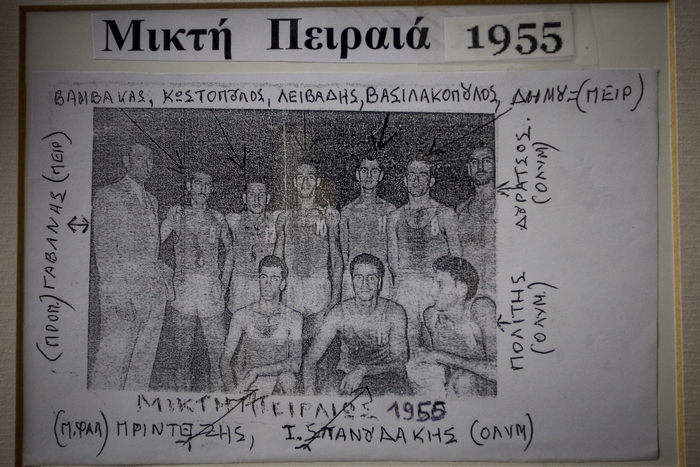 Μικτή Πειραιά 1955
ΒΑΜΒΑΚΑΣ, ΚΩΣΤΟΠΟΥΛΟΣ, ΛΕΙΒΑΔΗΣ, ΒΑΣΙΛΑΚΟΠΟΥΛΟΣ, ΔΗΜΟΥ (ΠΕΙΡ)
(ΠΡΟΠ) ΓΑΒΑΛΗΣ (ΠΕΙΡ)
ΔΟΥΡΑΤΣΟΣ.
(ΟΛΥΜ)
ΠΟΛΙΤΗΣ
(ΟΛΥΜ.)
ΜΙΚΤΗ ΠΕΙΡΑΙΩΣ 1955
(Π.ΦΑΛ) ΠΡΙΝΤΕΖΗΣ, Ι. ΣΠΑΝΟΥΔΑΚΗΣ (ΟΛΥΜ)